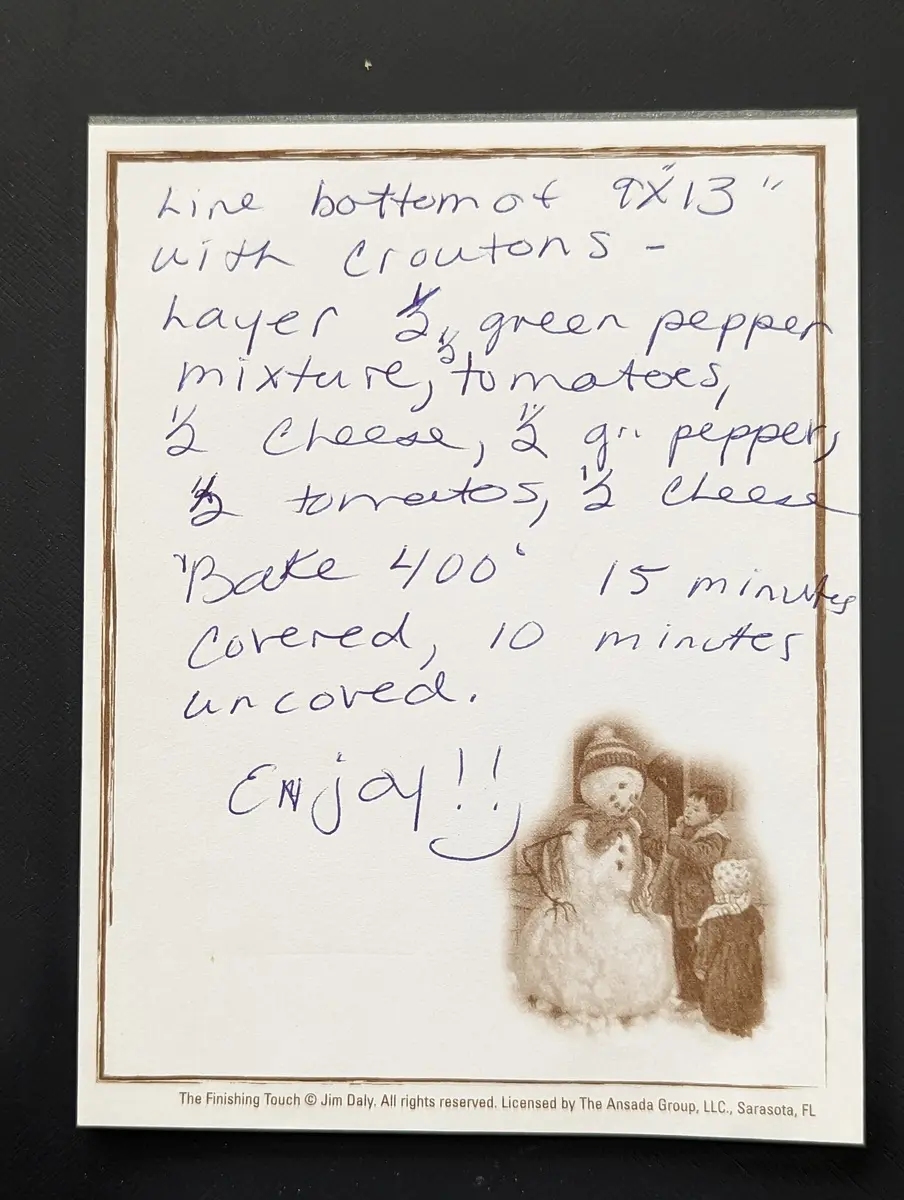 Line bottom of 9"X13"
with Croutons -
Layer 1/2 green pepper
mixture, 1/2 tomatoes,
1/2 Cheese, 1/2 gr. pepper,
1/2 tomatos, 1/2 Cheese
Bake 400° 15 minutes
Covered, 10 minutes
uncoved.
Enjoy!!
The Finishing Touch © Jim Daly. All rights reserved. Licensed by The Ansada Group, LLC., Sarasota, FL